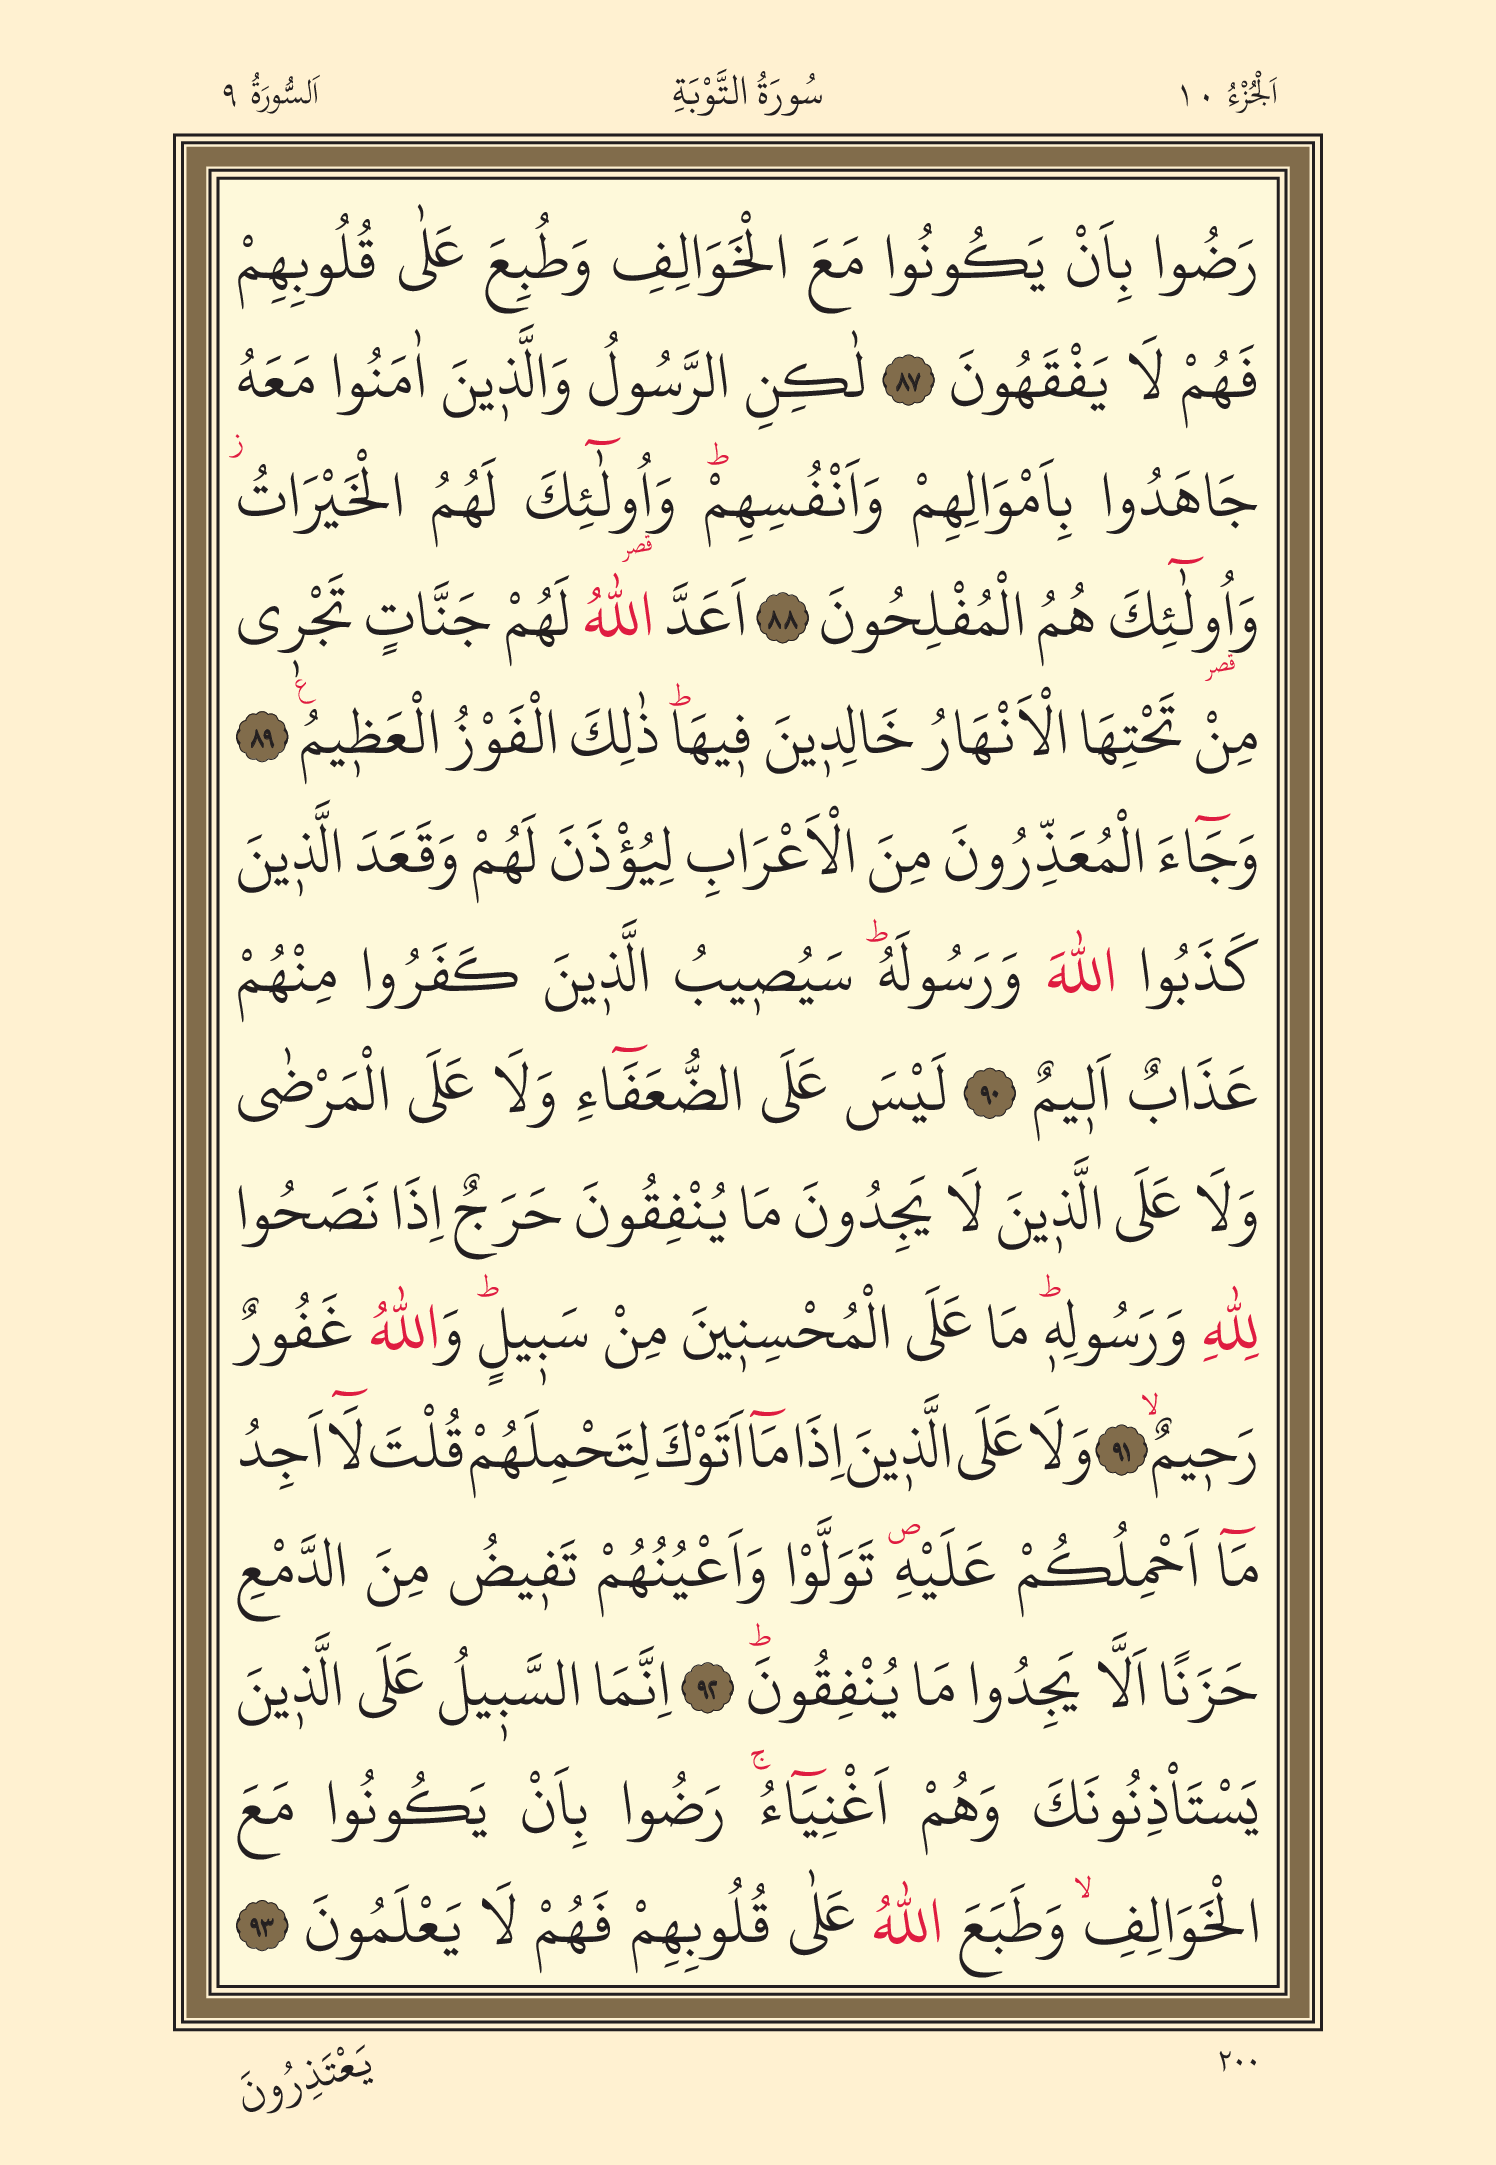 اَلْجُزْءُ ١٠
سُورَةُ التَّوْبَةِ
اَلسُّورَةُ ٩
رَضُوا بِاَنْ يَكُونُوا مَعَ الْخَوَالِفِ وَطُبِعَ عَلٰى قُلُوبِهِمْ
فَهُمْ لَا يَفْقَهُونَ ٨٧ لٰكِنِ الرَّسُولُ وَالَّذ۪ينَ اٰمَنُوا مَعَهُ
جَاهَدُوا بِاَمْوَالِهِمْ وَاَنْفُسِهِمْۜ وَاُولٰٓئِكَ لَهُمُ الْخَيْرَاتُۘ
وَاُولٰٓئِكَ هُمُ الْمُفْلِحُونَ ٨٨ اَعَدَّ اللّٰهُ لَهُمْ جَنَّاتٍ تَجْر۪ى
مِنْ تَحْتِهَا الْاَنْهَارُ خَالِد۪ينَ ف۪يهَاۜ ذٰلِكَ الْفَوْزُ الْعَظ۪يمُ۟ ٨٩
وَجَٓاءَ الْمُعَذِّرُونَ مِنَ الْاَعْرَابِ لِيُؤْذَنَ لَهُمْ وَقَعَدَ الَّذ۪ينَ
كَذَبُوا اللّٰهَ وَرَسُولَهُۜ سَيُص۪يبُ الَّذ۪ينَ كَفَرُوا مِنْهُمْ
عَذَابٌ اَل۪يمٌ ٩٠ لَيْسَ عَلَى الضُّعَفَٓاءِ وَلَا عَلَى الْمَرْضٰى
وَلَا عَلَى الَّذ۪ينَ لَا يَجِدُونَ مَا يُنْفِقُونَ حَرَجٌ اِذَا نَصَحُوا
لِلّٰهِ وَرَسُولِه۪ۜ مَا عَلَى الْمُحْسِن۪ينَ مِنْ سَب۪يلٍۜ وَاللّٰهُ غَفُورٌ
رَح۪يمٌۙ ٩١ وَلَا عَلَى الَّذ۪ينَ اِذَا مَٓا اَتَوْكَ لِتَحْمِلَهُمْ قُلْتَ لَٓا اَجِدُ
مَٓا اَحْمِلُكُمْ عَلَيْهِۖ تَوَلَّوْا وَاَعْيُنُهُمْ تَف۪يضُ مِنَ الدَّمْعِ
حَزَنًا اَلَّا يَجِدُوا مَا يُنْفِقُونَۜ ٩٢ اِنَّمَا السَّب۪يلُ عَلَى الَّذ۪ينَ
يَسْتَاْذِنُونَكَ وَهُمْ اَغْنِيَٓاءُۚ رَضُوا بِاَنْ يَكُونُوا مَعَ
الْخَوَالِفِۙ وَطَبَعَ اللّٰهُ عَلٰى قُلُوبِهِمْ فَهُمْ لَا يَعْلَمُونَ ٩٣
٢٠٠
يَعْتَذِرُونَ